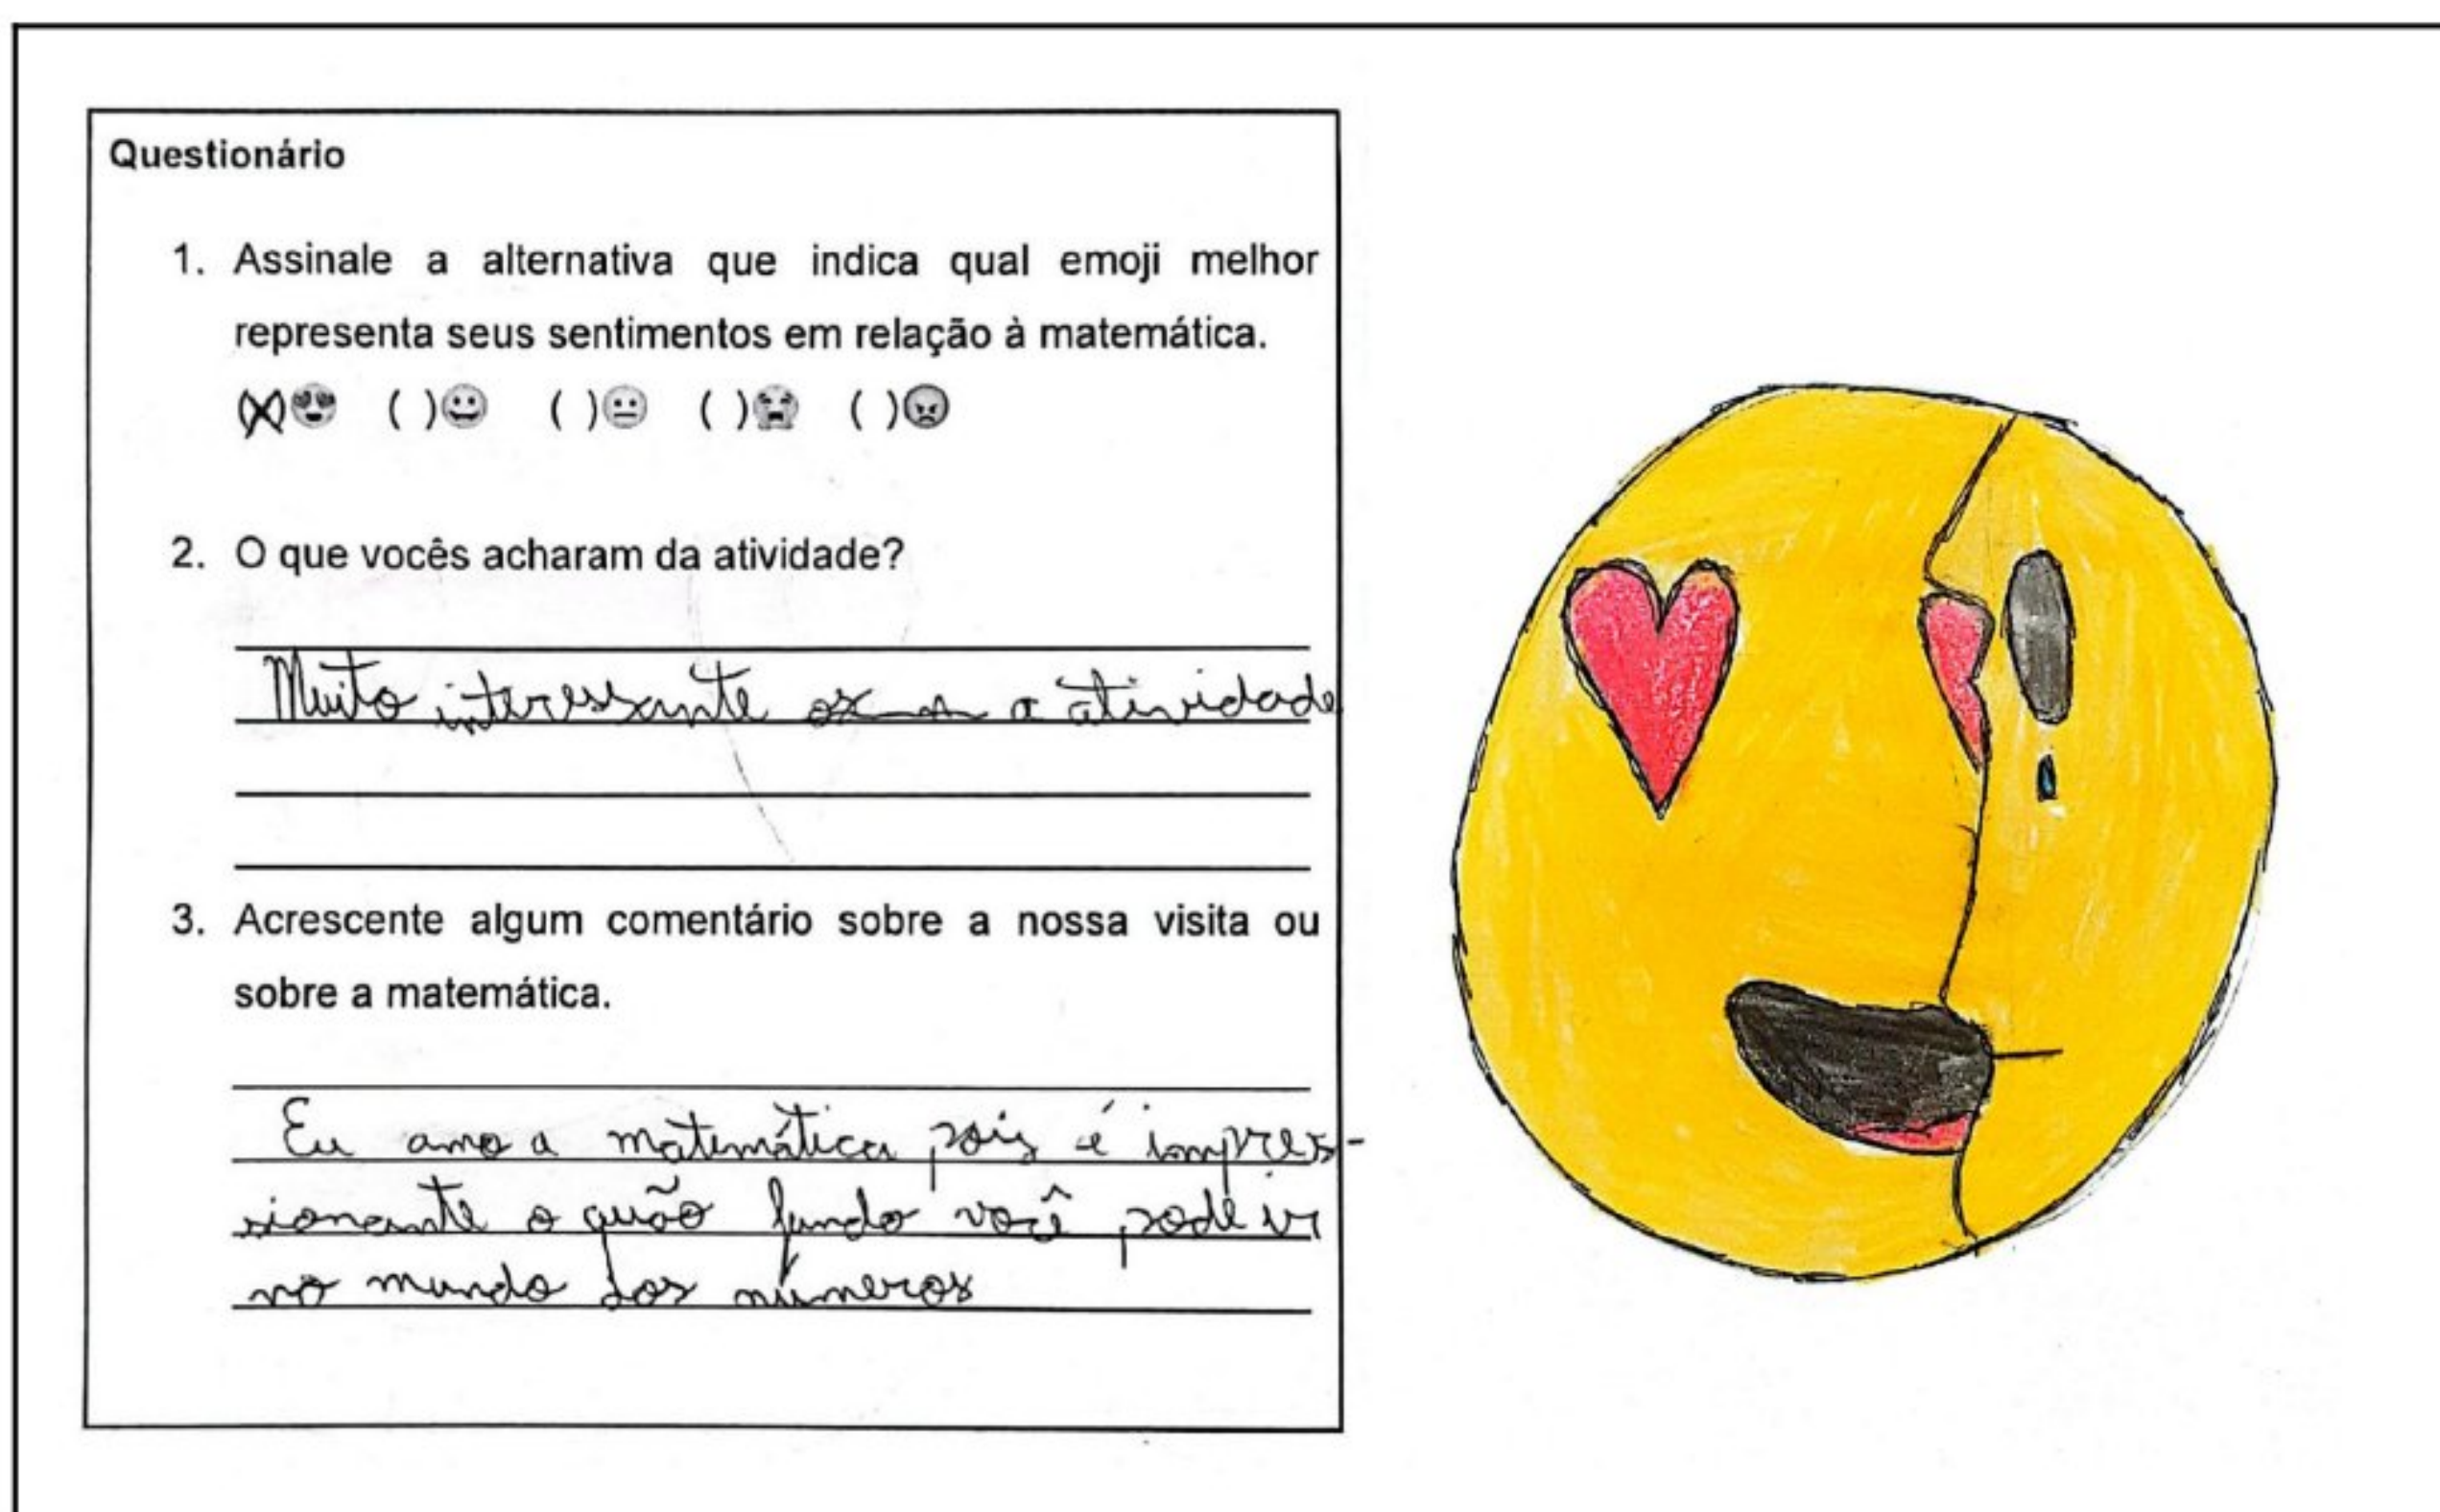 Questionário
1. Assinale a alternativa que indica qual emoji melhor
representa seus sentimentos em relação à matemática.
(X)😍 ( )😀 ( )😐 ( )😭 ( )😡
2. O que vocês acharam da atividade?
Muito interessante a atividade
3. Acrescente algum comentário sobre a nossa visita ou
sobre a matemática.
Eu amo a matemática pois é impres-
sionante o quão fundo você pode ir
no mundo dos números